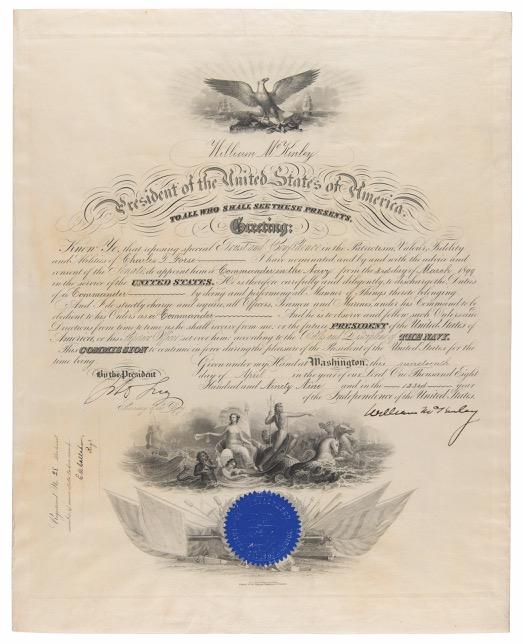 William McKinley
President of the United States of America.
TO ALL WHO SHALL SEE THESE PRESENTS,
Greeting:
Know Ye, that reposing special Trust and Confidence in the Patriotism, Valor, Fidelity
and Abilities of Charles T. Forse I have nominated and by and with the advice and
consent of the Senate do appoint him a Commander in the Navy from the 3rd day of March 1899
in the service of the UNITED STATES. He is therefore carefully and diligently to discharge the Duties
of a Commander by doing and performing all Manner of Things thereto belonging.
And I do strictly charge and require all Officers, Seamen and Marines under his Command to be
obedient to his Orders as a Commander And he is to observe and follow such Orders and
Directions from time to time as he shall receive from me, or the future PRESIDENT of the United States of
America, or his Superior Officer set over him, according to the Rules and Discipline of THE NAVY.
This COMMISSION to continue in force during the pleasure of the President of the United States for the
time being.
Given under my Hand at Washington, this
day of April in the year of our Lord One Thousand Eight
Hundred and Ninety Nine and in the 123rd year
of the Independence of the United States.
By the President
William McKinley
Secretary of the Navy
Registered No.